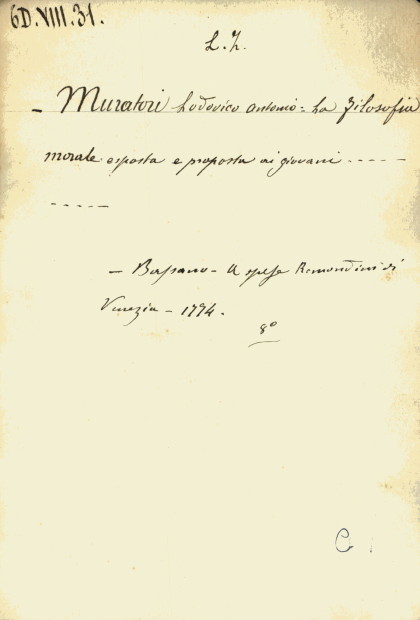 6D.VIII.31.
L. I.
- Muratori Lodovico Antonio = La Filosofia
morale esposta e proposta ai giovani -----
-----
- Bassano - A spese Remondini di
Venezia - 1774.
8º
C